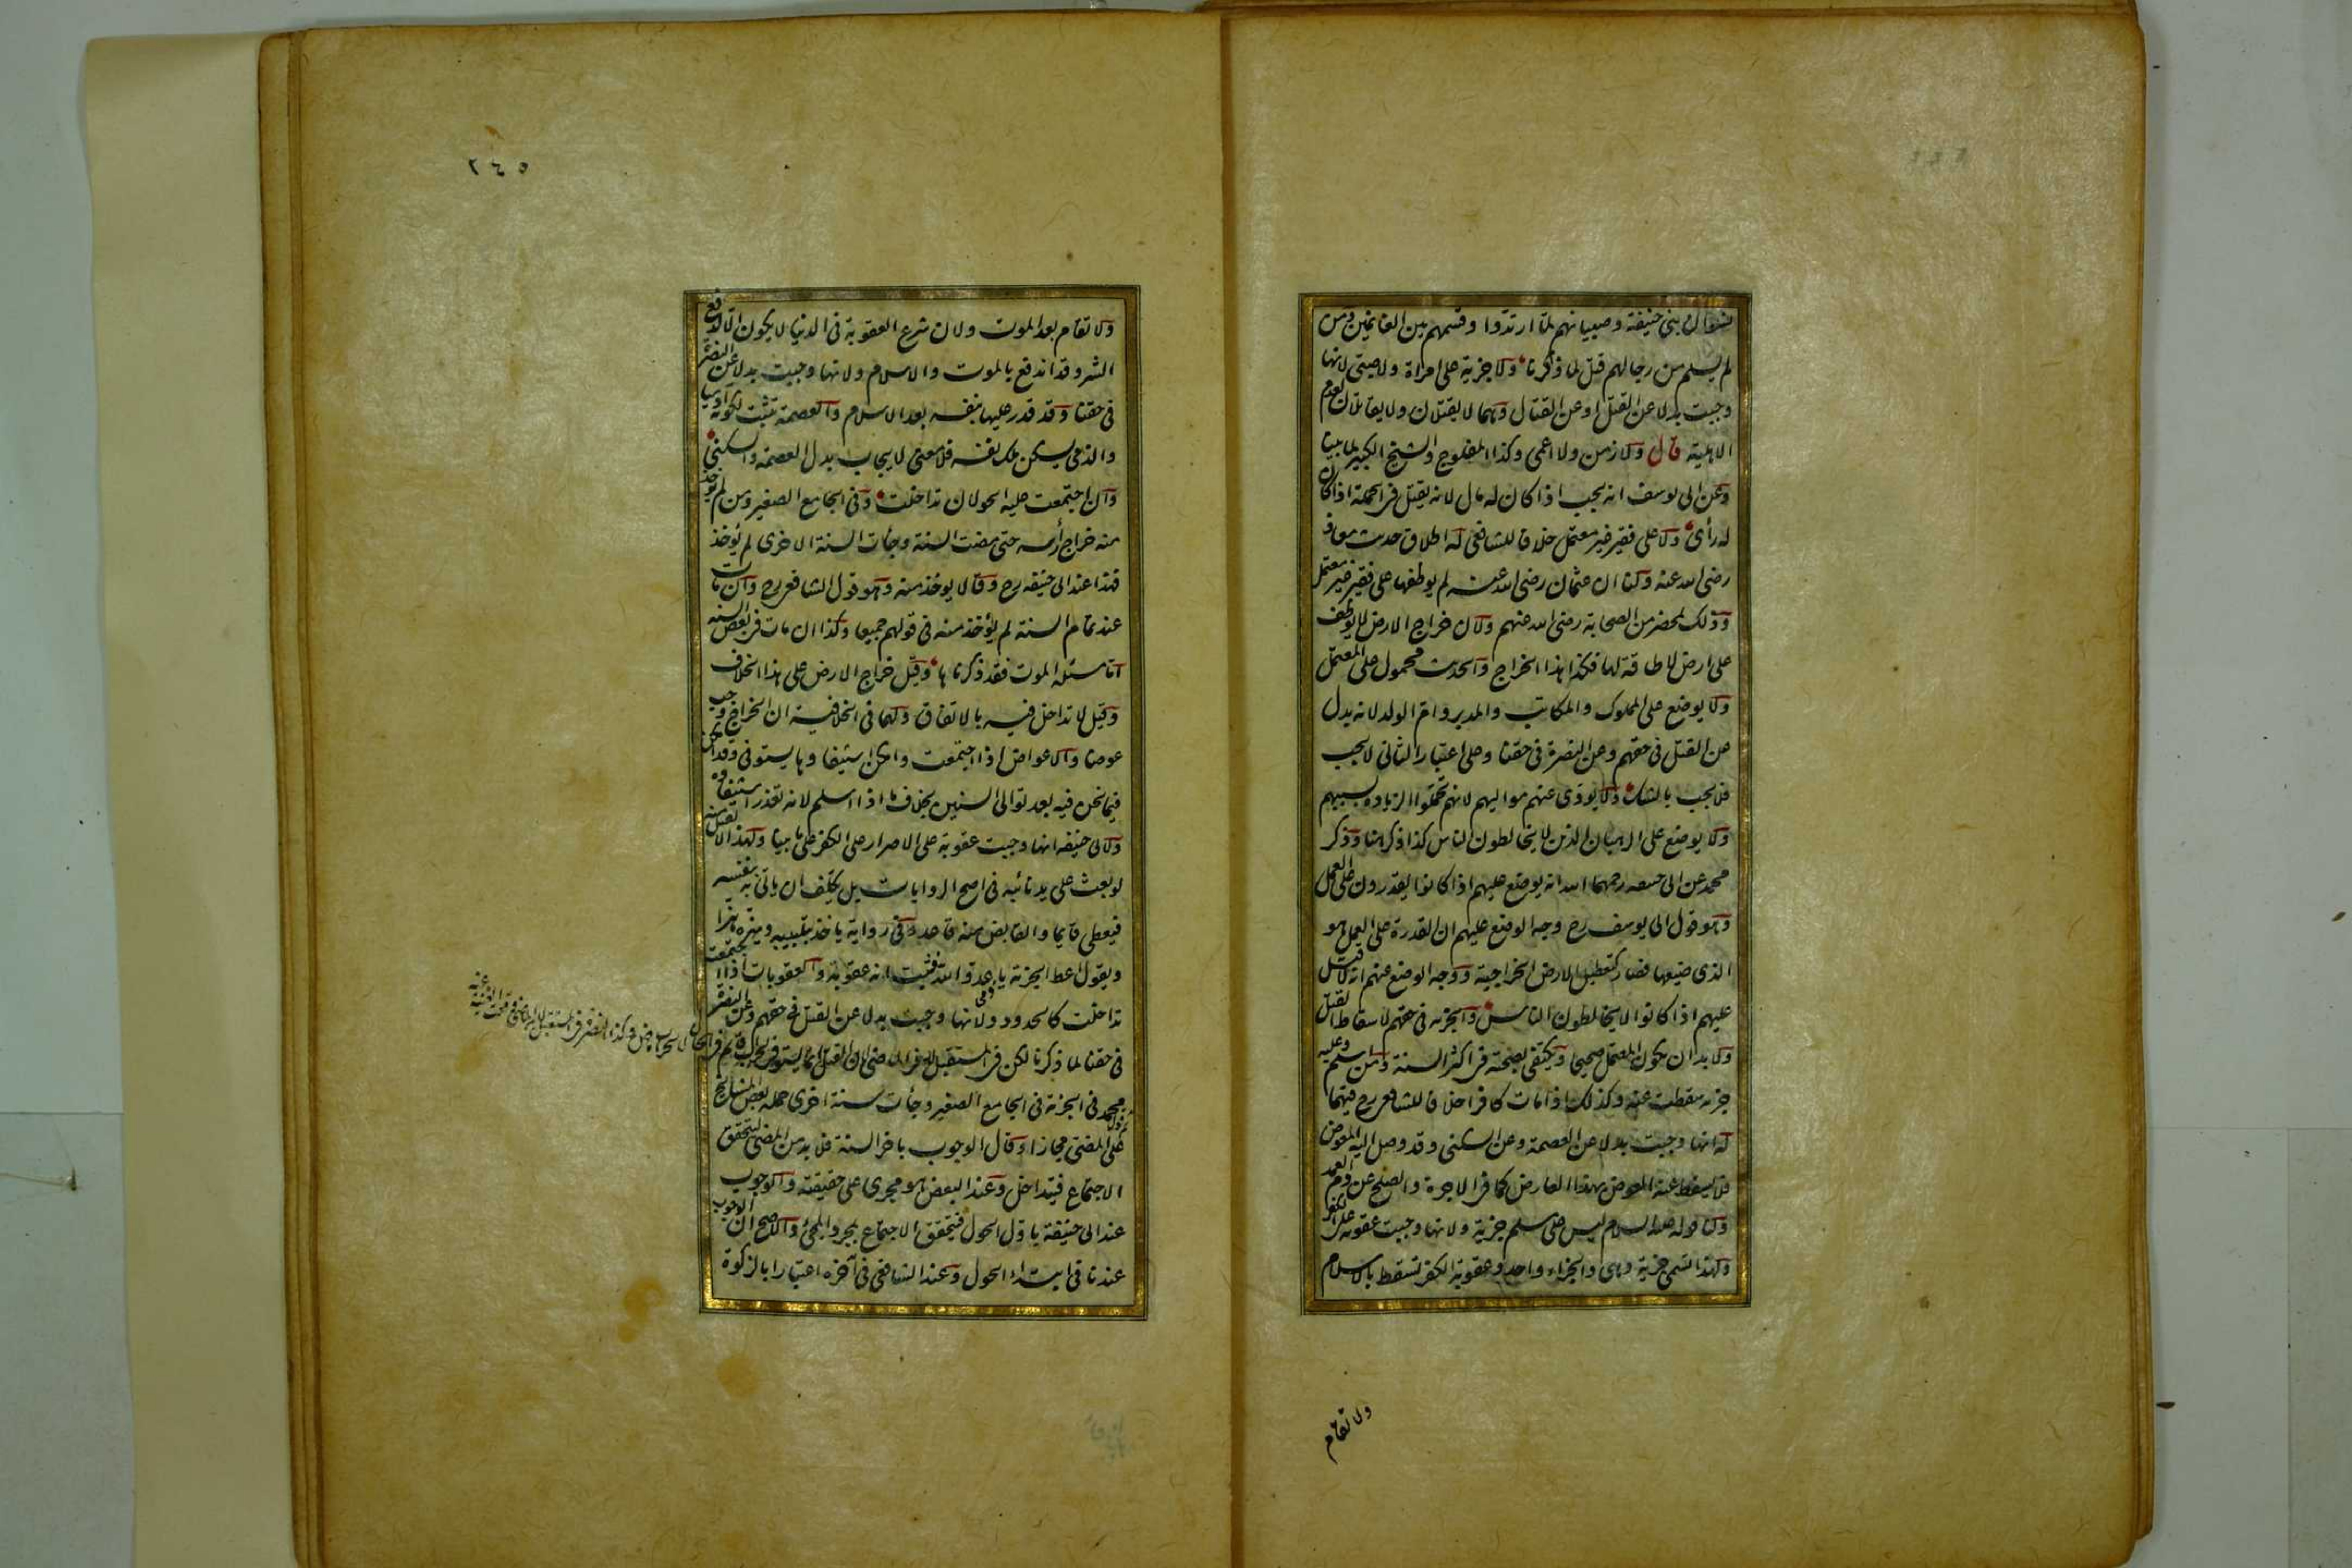 نسوان بنى حنيفة وصبيانهم لما ارتدوا وقسمهم بين الغانمين ومن
لم يسلم من رجالهم قتل لما ذكرنا ولا جزية على امراة ولا صبى لانها
وجبت بدلا عن القتل او عن القتال وهما لا يقتلان ولا يقاتلان لعدم
الاهلية قال ولا زمن ولا اعمى وكذا المفلوج والشيخ الكبير لما بينا
وعن ابى يوسف انه يجب اذا كان له مال لانه يقتل فى الجملة اذا كان
له رأى ولا على فقير غير معتمل خلافا للشافعى له اطلاق حديث معاذ
رضى الله عنه ولنا ان عثمان رضى الله عنه لم يوظفها على فقير غير معتمل
وذلك بمحضر من الصحابة رضى الله عنهم ولان خراج الارض لا يوظف
على ارض لا طاقة لها فكذا هذا الخراج والحديث محمول على المعتمل
ولا يوضع على المملوك والمكاتب والمدبر وام الولد لانه بدل
عن القتل فى حقهم وعن النصرة فى حقنا وعلى اعتبار الثانى لا يجب
فلا يجب بالشك ولا يودى عنهم مواليهم لانهم تحملوا الزيادة بسببهم
ولا يوضع على الرهبان الذين لا يخالطون الناس كذا ذكر هنا وذكر
محمد عن ابى حنيفه رحمهما الله انه يوضع عليهم اذا كانوا يقدرون على العمل
وهو قول ابى يوسف رح وجه الوضع عليهم ان القدرة على العمل هو
الذى ضيعها فصار كتعطيل الارض الخراجية ووجه الوضع عنهم انه لا قتل
عليهم اذا كانوا لا يخالطون الناس والجزية فى حقهم لاسقاط القتل
ولا بد ان يكون المعتمل صحيحا ويكتفى بصحته فى اكثر السنة ومن اسلم وعليه
جزية سقطت عنه وكذلك اذا مات كافرا خلافا للشافعى رح فيهما
له انها وجبت بدلا عن العصمة وعن السكنى وقد وصل اليه المعوض
فلا يسقط عنه العوض بهذا العارض كما فى الاجرة والصلح عن دم العمد
ولنا قوله عليه السلام ليس على مسلم جزية ولانها وجبت عقوبة على الكفر
ولهذا تسمى جزية وهى والجزاء واحد وعقوبة الكفر تسقط بالاسلام
ولا تقام
٢٤٥
ولا تقام بعد الموت ولان شرع العقوبة فى الدنيا لا يكون الا لدفع
الشر وقد اندفع بالموت والاسلام ولانها وجبت بدلا عن النصرة
فى حقنا وقد قدر عليها بنفسه بعد الاسلام والعصمة تثبت لكونه آدميا
والذمى يسكن ملك نفسه فلا معنى لايجاب بدل العصمة والسكنى
وان اجتمعت عليه الحولان تداخلت وفى الجامع الصغير ومن لم يوخذ
منه خراج رأسه حتى مضت السنة وجأت السنة الاخرى لم يؤخذ
فهذا عند ابى حنيفه رح وقالا يوخذ منه وهو قول الشافعى رح وان مات
عند تمام السنة لم يؤخذ منه فى قولهم جميعا وكذا ان مات فى بعض السنه
اما مسئله الموت فقد ذكرناها وقيل خراج الارض على هذا الخلاف
وقيل لا تداخل فيه بالاتفاق ولهما فى الخلافية ان الخراج وجب
عوضا والاعواض اذا اجتمعت وامكن استيفاوها يستوفى وقد امكن
فيما نحن فيه بعد توالى السنين بخلاف ما اذا اسلم لانه تعذر استيفاوه
ولابى حنيفه انها وجبت عقوبة على الاصرار على الكفر على ما بينا ولهذا لا تقبل منه
لو بعث على يد نائبه فى اصح الروايات بل يكلف ان ياتى به بنفسه
فيعطى قايما والقابض منه قاعد وفى رواية ياخذ بتلبيبه ويهزه هزا
ويقول اعط الجزية يا عدو الله فثبت انه عقوبة والعقوبات اذا اجتمعت
تداخلت كالحدود ولانها وجبت بدلا عن القتل فى حقهم وعن النصرة
فى حقنا لما ذكرنا لكن فى المستقبل لا فى الماضى لان القتل انما يستوفى لحراب قائم فى الحال لا لحراب ماض وكذا النصرة فى المستقبل لان الماضى وقعت الغنية عنه
ثم قول محمد فى الجزية فى الجامع الصغير وجأت سنة اخرى حمله بعض المشايخ
على المضى مجازا وقال الوجوب باخر السنة فلا بد من المضى ليتحقق
الاجتماع فيتداخل وعند البعض هو مجرى على حقيقته والوجوب
عند ابى حنيفة باول الحول فيتحقق الاجتماع بمجرد المجئ والاصح ان الوجوب
عندنا فى ابتداء الحول وعند الشافعى فى آخره اعتبارا بالزكوة